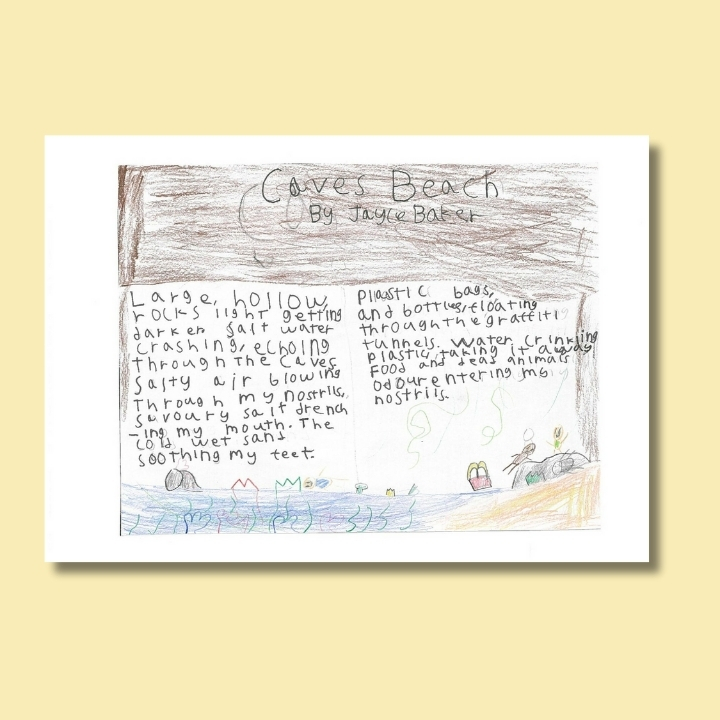 Caves Beach
By Jayce Baker
Large, hollow,
rocks light getting
darker salt water
crashing, echoing
through the caves
Salty air blowing
Through my nostrils,
savoury salt drench
-ing my mouth. The
cold wet sand
soothing my feet.
Plastic bags,
and bottles, floating
through the graffiti
tunnels. Water crinkling
plastic, taking it away
Food and deas animals
odour entering my
nostrils.